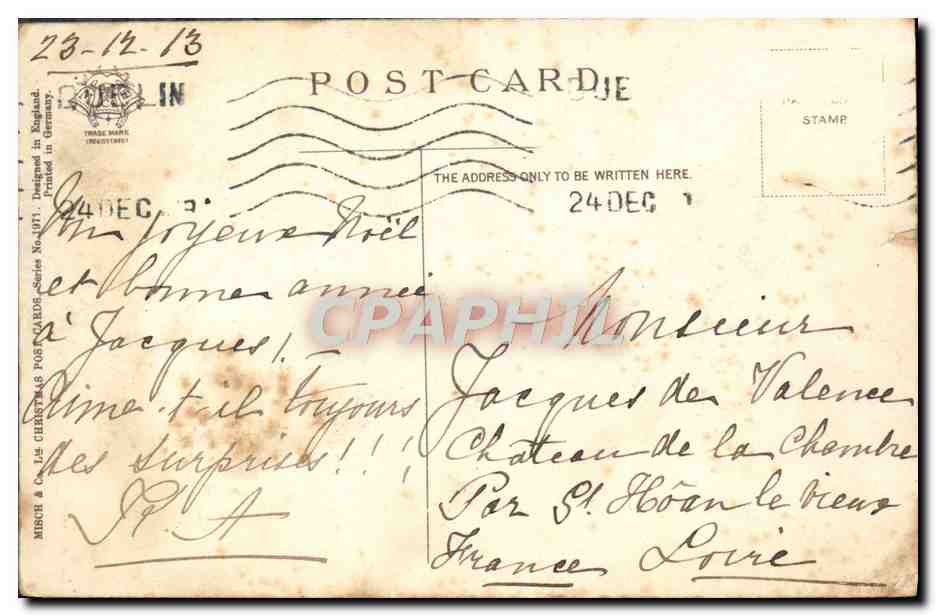 23-12-13
POST CARD
TRADE MARK
STAMP
THE ADDRESS ONLY TO BE WRITTEN HERE.
24 DEC
24 DEC
MISCH & Co., Ltd. CHRISTMAS POST CARDS, Series No. 1971. Designed in England.
Printed in Germany.
Un joyeux Noël
et bonne année
à Jacques! —
Aime-t-il toujours
des surprises!!!
CPAPHIL
Monsieur
Jacques de Valence
Château de la Chambre
Par St. Hôan le vieux
France Loire